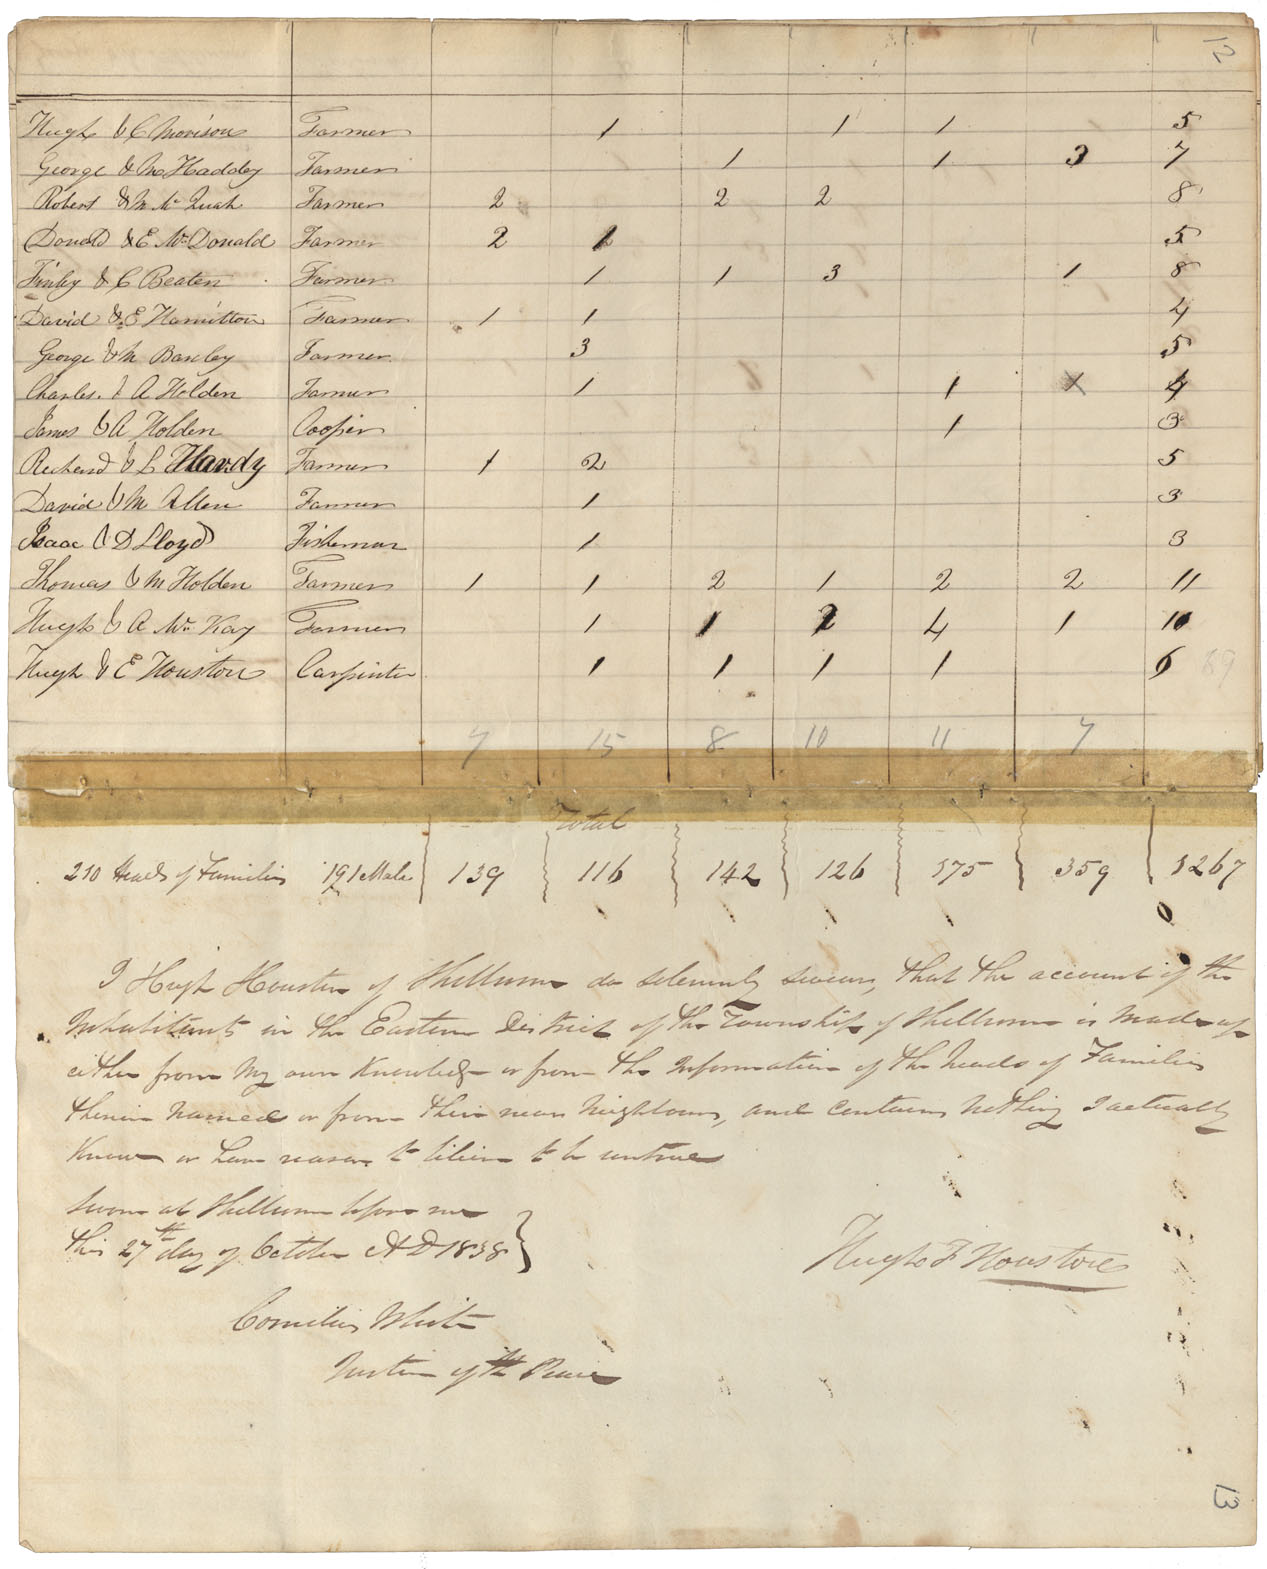 12
Hugh & C Morison Farmer 1 1 1 5
George & M Haddey Farmer 1 1 3 7
Robert & M Mc Farmer 2 2 2 8
Donald & E McDonald Farmer 2 5
Finley & C Beaten Farmer 1 1 3 1 8
David & E Hamilton Farmer 1 1 4
George & M Farmer 3 5
Charles & A Holden Farmer 1 1 4
James & A Holden Cooper 1 3
Richard & L Hardy Farmer 1 2 5
David & M Allen Farmer 1 3
Isaac & D Lloyd Fisherman 1 3
Thomas & M Holden Farmer 1 1 2 1 2 2 11
Hugh & A McKay Farmer 1 1 2 4 1 10
Hugh & E Houston Carpinter 1 1 1 1 6 89
7 15 8 10 11 7
Total
210 Heads of Families 191 Male 139 116 142 126 175 359 1267
I Hugh Houston of Shelburne do solemnly swear, that the account of the
Inhabitants in the Eastern District of the Township of Shelburne is made up
either from my own Knowledge or from the Information of the heads of Families
therein named or from their near Neighbours, and contains nothing I actually
Know or have reason to believe to be untrue
Sworn at Shelburne before me
this 27th day of October AD 1838
Hugh F Houston
Cornelius White
Justice of the Peace
13